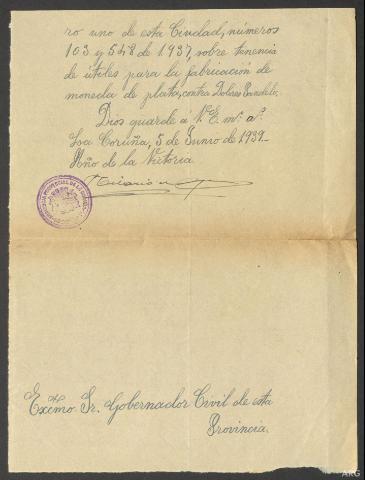 ro uno de esta Ciudad, números
103 y 548 de 1937, sobre tenencia
de útiles para la fabricación de
moneda de plata, contra Dolores
Dios guarde a V.E. ms. as.
La Coruña, 5 de Junio de 1939.
Año de la Victoria
Excmo Sr. Gobernador Civil de esta
Provincia.
ARG